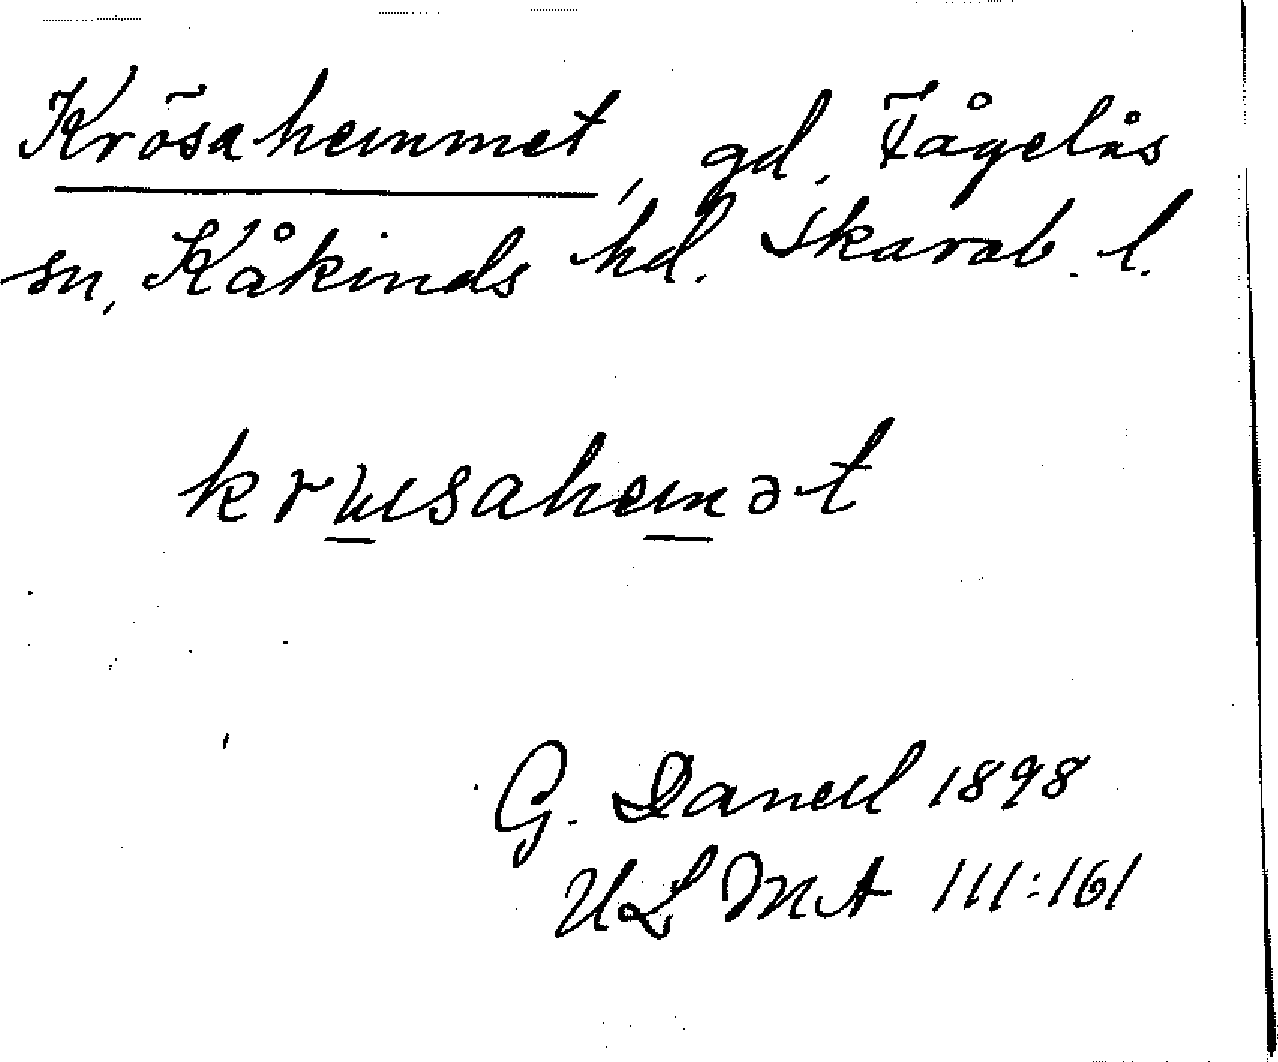 Krösahemmet, gd. Fågelås
sn, Kåkinds hd. Skarab. l.
krusahemət
G. Danell 1898
ULMA 111:161